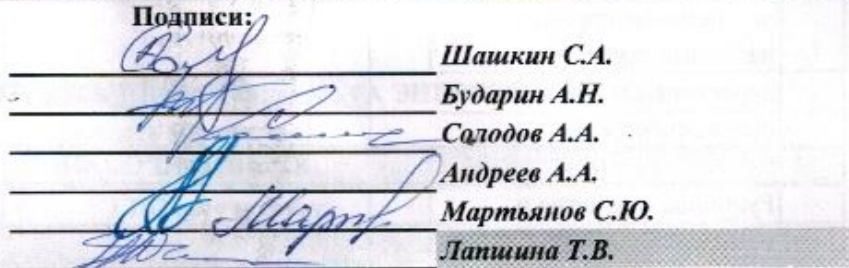 Подписи:
Шашкин С.А.
Бударин А.Н.
Солодов А.А.
Андреев А.А.
Мартьянов С.Ю.
Лапшина Т.В.